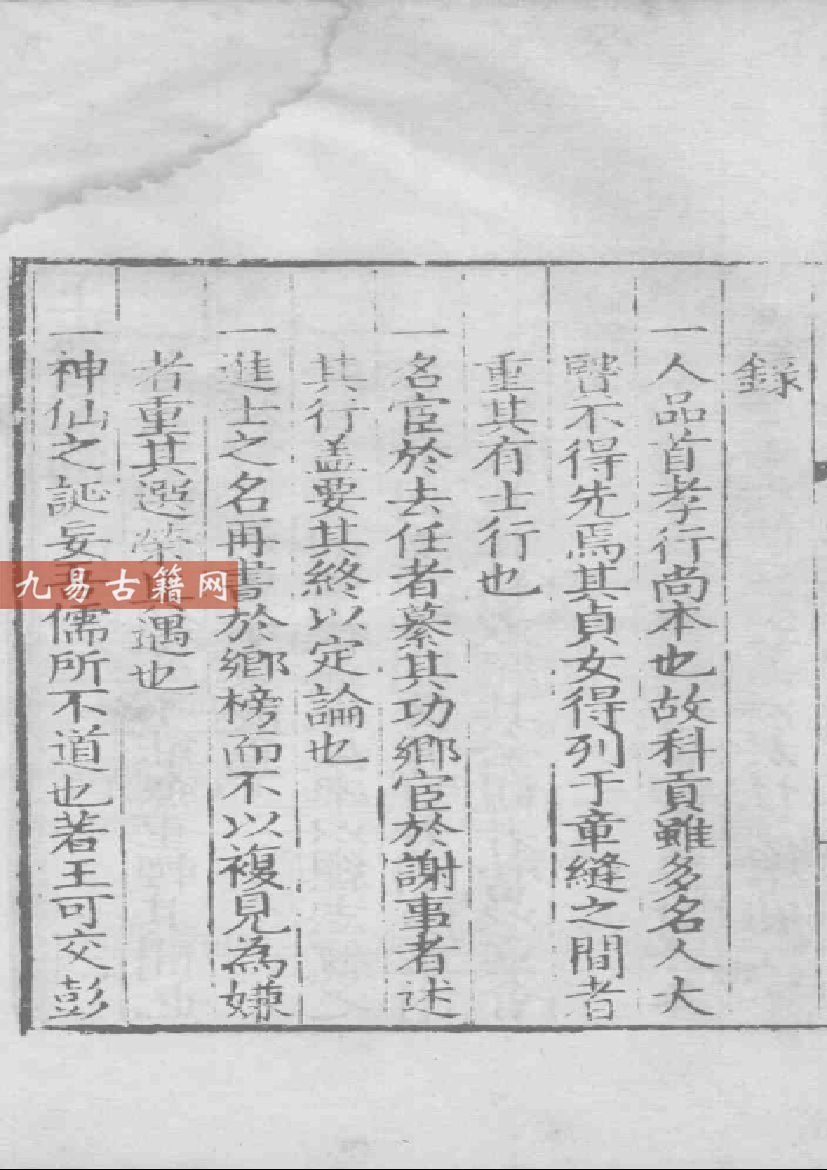 録
一人品首孝行尚本也故科貢雖多名人大
譬示得先焉其貞女得列于章縫之間者
重其有士行也
一名宦於去任者纂其功鄉宦於謝事者述
其行盖要其終以定論也
一進士之名再書於鄉榜而不以複見為嫌
者重其選榮其遇也
一神仙之誕妄吾儒所不道也若王可交彭
九易古籍网